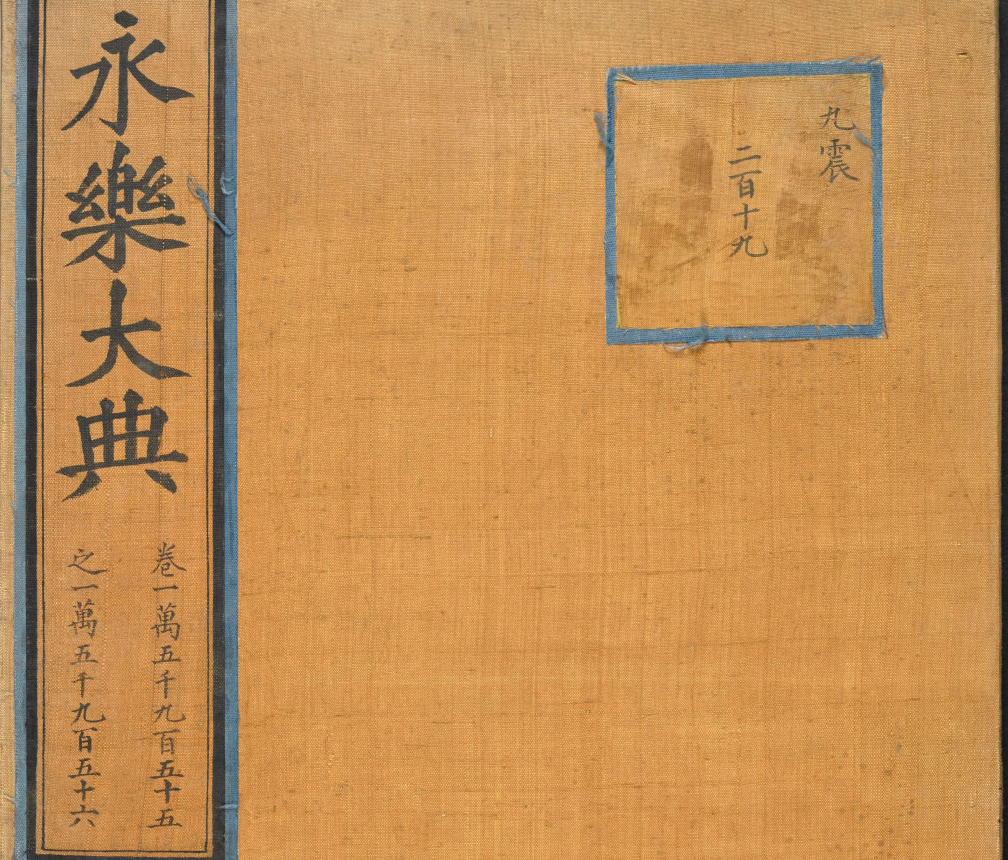 九震
二百十九
永樂大典
卷一萬五千九百五十五
之一萬五千九百五十六